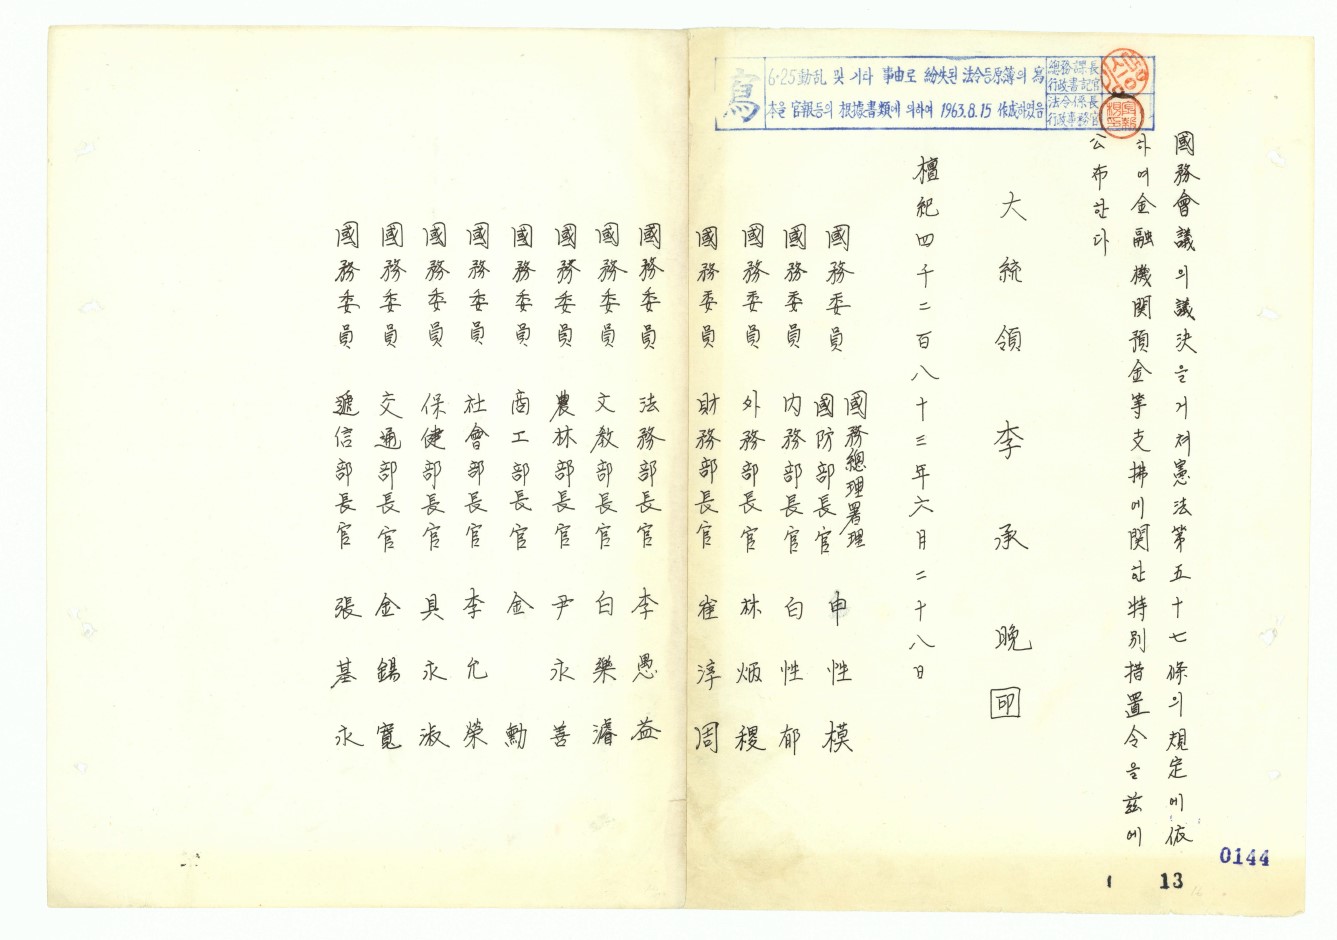 寫
6·25動乱 및 기타 事由로 紛失된 法令등原簿의 寫
本을 官報등의 根據書類에 의하여 1963.8.15 作成하였음
總務課長
行政書記官
法令係長
行政事務官
國務會議의議決을거쳐憲法第五十七條의規定에依
하여金融機関預金等支拂에関한特別措置令을茲에
公布한다
大統領 李承晩 印
檀紀四千二百八十三年六月二十八日
國務委員 國務總理署理 國防部長官 申性模
國務委員 内務部長官 白性郁
國務委員 外務部長官 林炳稷
國務委員 財務部長官 崔淳周
國務委員 法務部長官 李愚益
國務委員 文敎部長官 白樂濬
國務委員 農林部長官 尹永善
國務委員 商工部長官 金勳
國務委員 社會部長官 李允榮
國務委員 保健部長官 具永淑
國務委員 交通部長官 金錫寬
國務委員 遞信部長官 張基永
0144
13